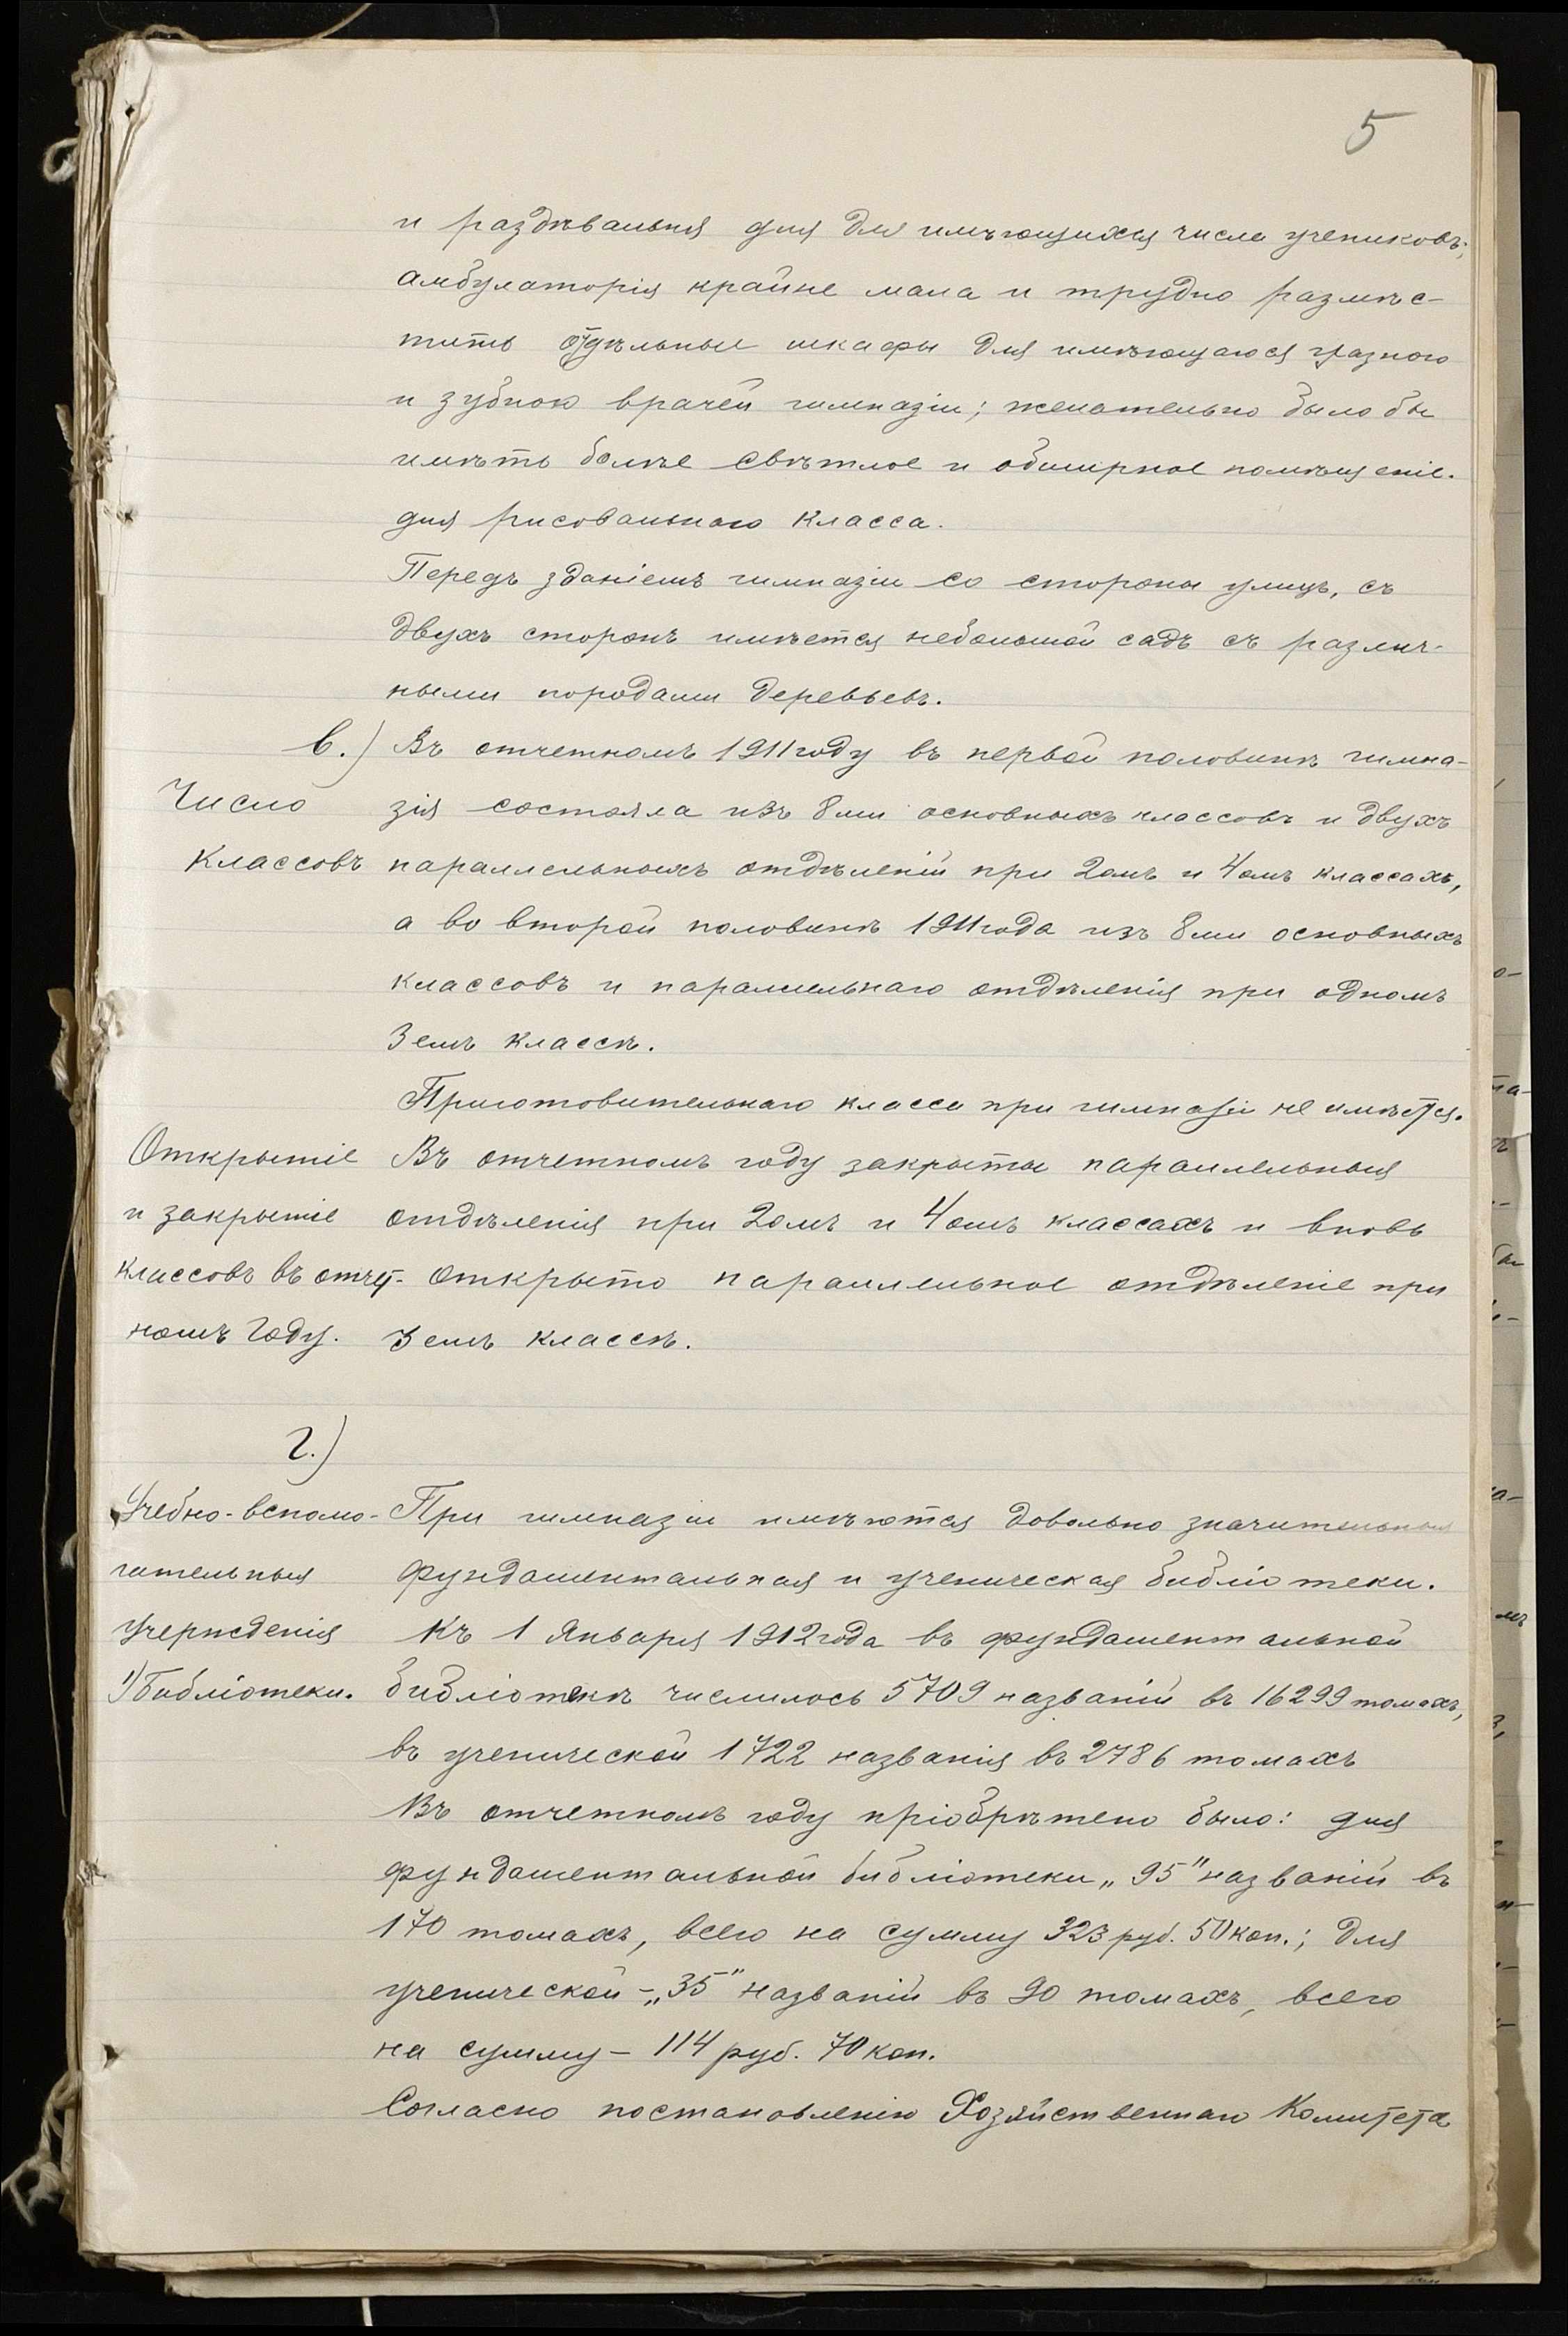 5
и раздѣвальня для для имѣющихся числа учениковъ;
амбулаторія крайне мала и трудно размѣс-
тить отдѣльные шкафы для имѣющагося глазного
и зубного врачей гимназіи; желательно было бы
имѣть болѣе свѣтлое и обширное помѣщеніе.
для рисовальнаго класса.
Передъ зданіемъ гимназіи со стороны улицъ, съ
двухъ сторонъ имѣется небольшой садъ съ различ-
ными породами деревьевъ.
в.) Въ отчетномъ 1911 году въ первой половинѣ гимна-
Число зія состояла изъ 8ми основныхъ классовъ и двухъ
классовъ параллельныхъ отдѣленій при 2омъ и 4омъ классахъ,
а во второй половинѣ 1911 года изъ 8ми основныхъ
классовъ и параллельнаго отдѣленія при одномъ
3емъ классѣ.
Приготовительнаго класса при гимназіи не имѣется.
Открытіе Въ отчетномъ году закрыты параллельныя
и закрытіе отдѣленія при 2омъ и 4омъ классахъ и вновь
классовъ въ отчет- открыто параллельное отдѣленіе при
номъ году. 3емъ классѣ.
г.)
Учебно-вспомо- При гимназіи имѣются довольно значительныя
гательныя фундаментальная и ученическая библіотеки.
учержденія Къ 1 Января 1912 года въ фундаментальной
1) Библіотеки. библіотекѣ числилось 5709 названій въ 16299 томахъ,
въ ученической 1722 названія въ 2786 томахъ
Въ отчетномъ году пріобрѣтено было: для
фундаментальной библіотеки „95" названій въ
170 томахъ, всего на сумму 323 руб. 50 коп.; для
ученической - „35" названій въ 90 томахъ, всего
на сумму - 114 руб. 70 коп.
Согласно постановленію Хозяйственнаго Комитета